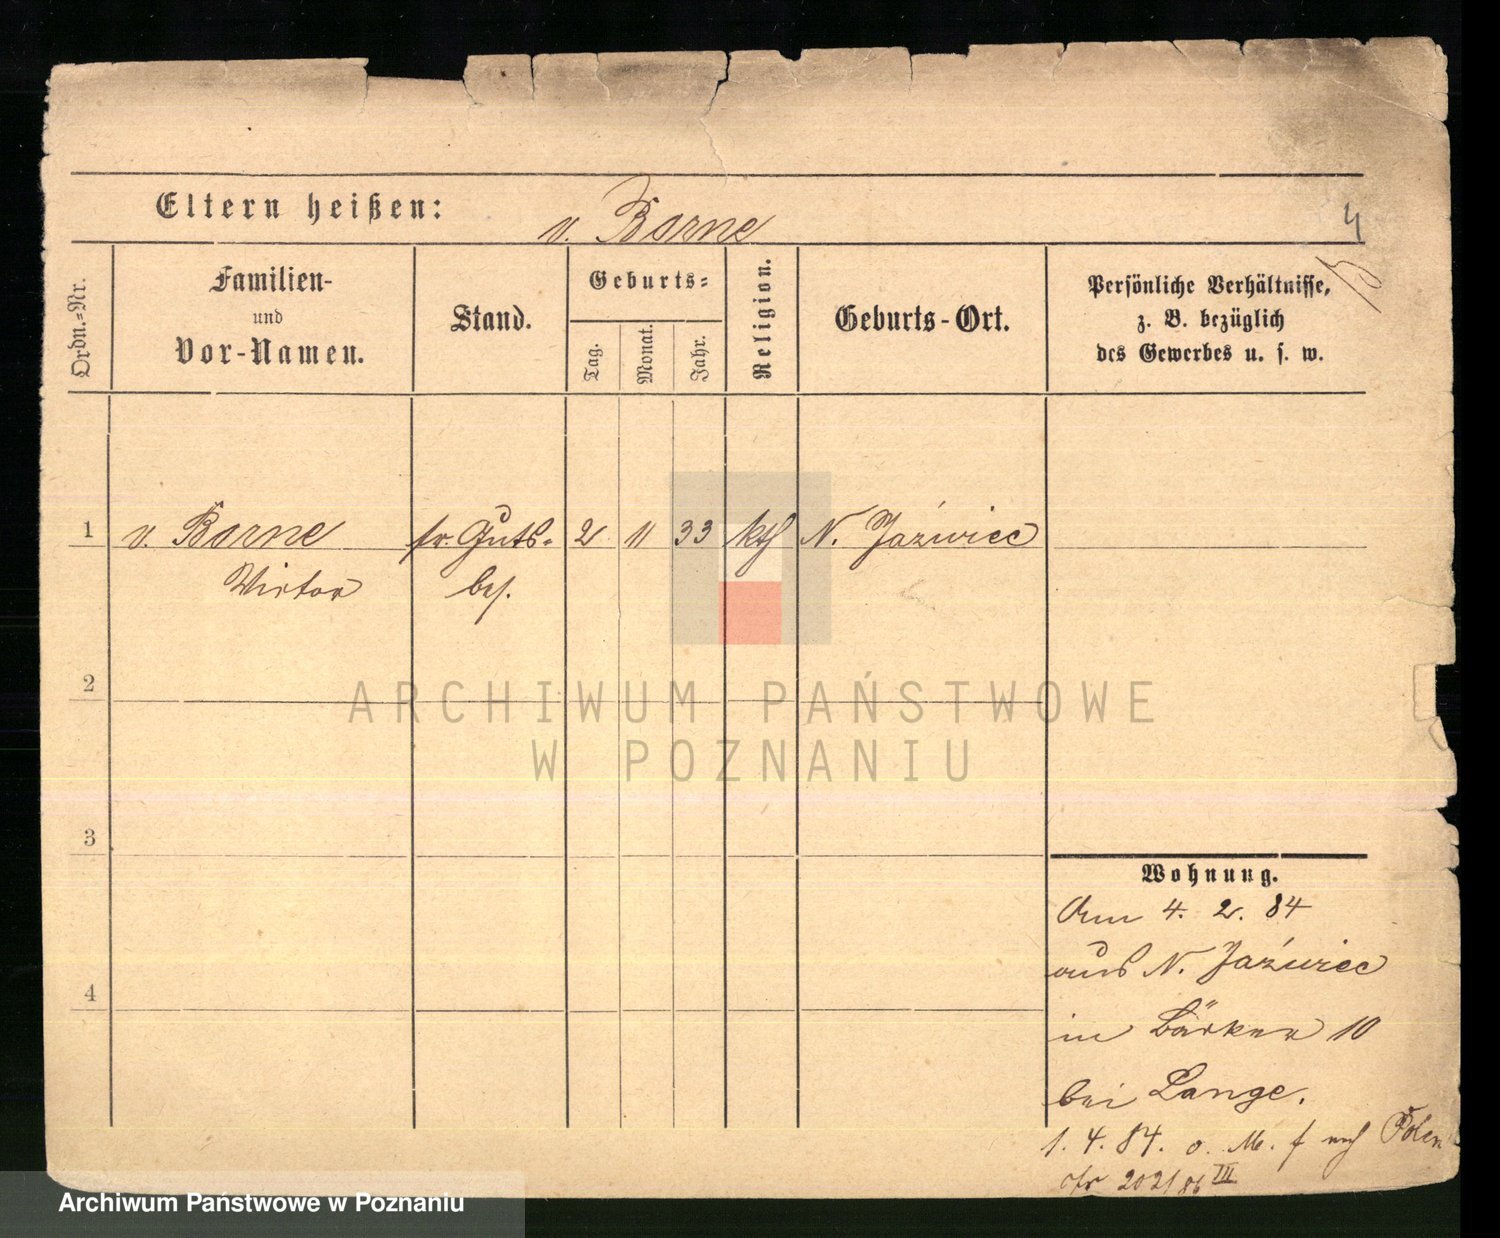 Eltern heißen: v. Borne
4
Ordn.-Nr.
Familien-
und
Vor-Namen.
Stand.
Geburts-
Tag.
Monat.
Jahr.
Religion.
Geburts-Ort.
Persönliche Verhältnisse,
z. B. bezüglich
des Gewerbes u. s. w.
1 v. Borne fr. Guts- 2 11 33 kth N. Jaźwiec
Victor bes.
2
ARCHIWUM PAŃSTWOWE
W POZNANIU
3
Wohnung.
Am 4. 2. 84
aus N. Jaźwiec
4
in Bärker 10
bei Lange.
1. 4. 84. o. M. f nach Polen
202/86 III
Archiwum Państwowe w Poznaniu